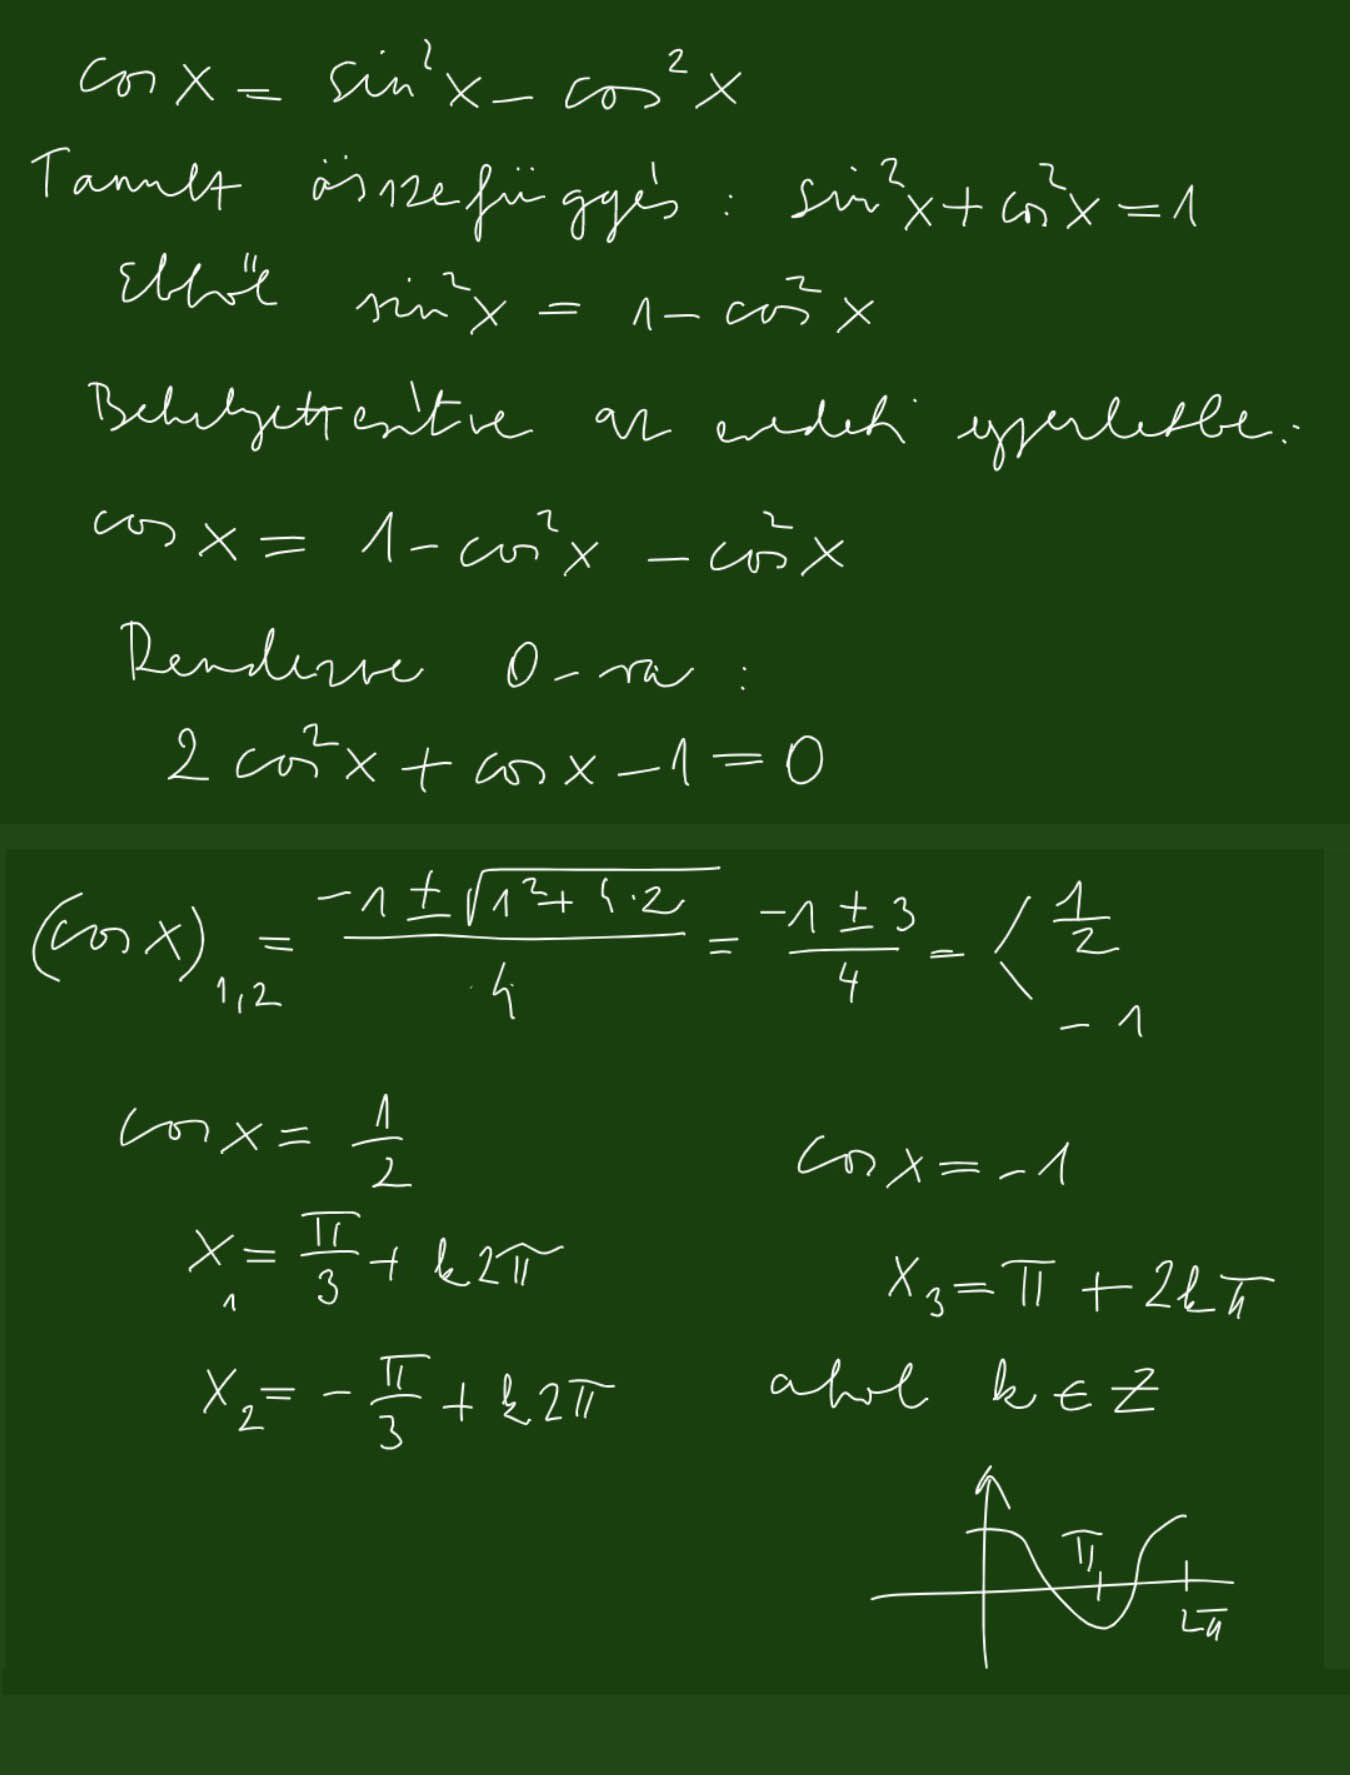 cos x = sin²x - cos²x
Tanult összefüggés: sin²x + cos²x = 1
Ebből sin²x = 1 - cos²x
Behelyettesítve az eredeti egyenletbe:
cos x = 1 - cos²x - cos²x
Rendezve 0-ra:
2 cos²x + cos x - 1 = 0
(cos x)₁,₂ = (-1 ± √(1² + 4·2))/4 = (-1 ± 3)/4 = < 1/2
-1
cos x = 1/2
cos x = -1
x₁ = π/3 + k2π
x₃ = π + 2kπ
x₂ = -π/3 + k2π
ahol k ∈ Z
π
2π